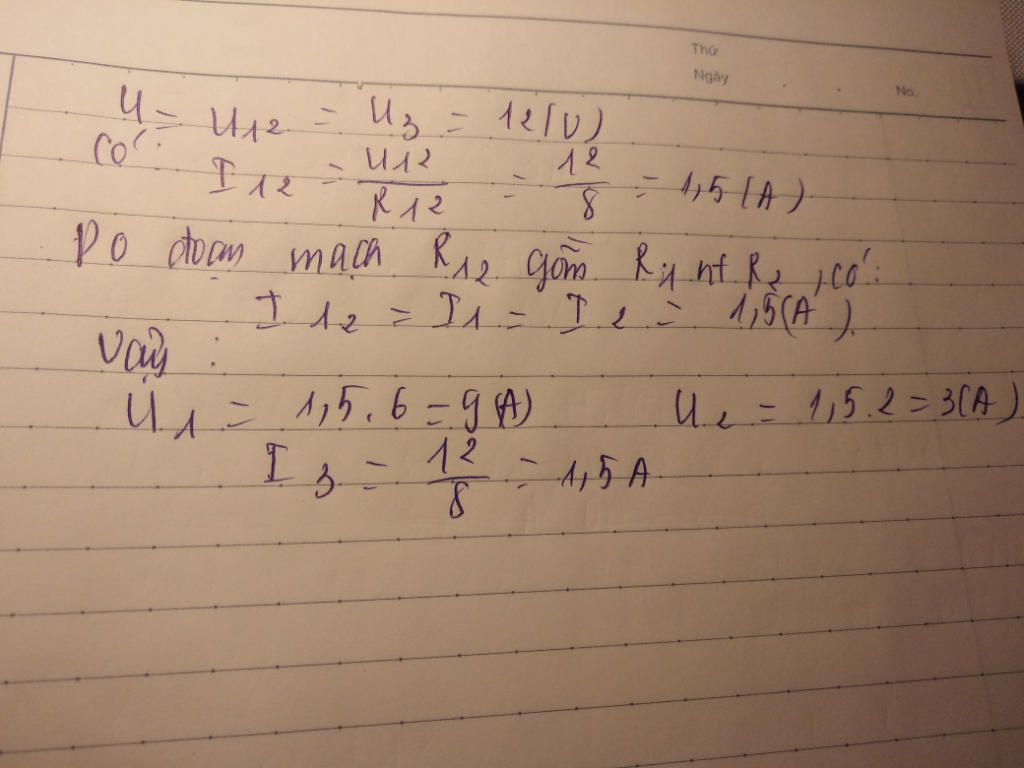 Thứ
Ngày
No.
U = U12 = U3 = 12(V)
Có: I12 = U12/R12 = 12/8 = 1,5(A)
Do đoạn mạch R12 gồm R1 nt R2, có:
I12 = I1 = I2 = 1,5(A).
Vậy:
U1 = 1,5.6 = 9(A) U2 = 1,5.2 = 3(A)
I3 = 12/8 = 1,5A